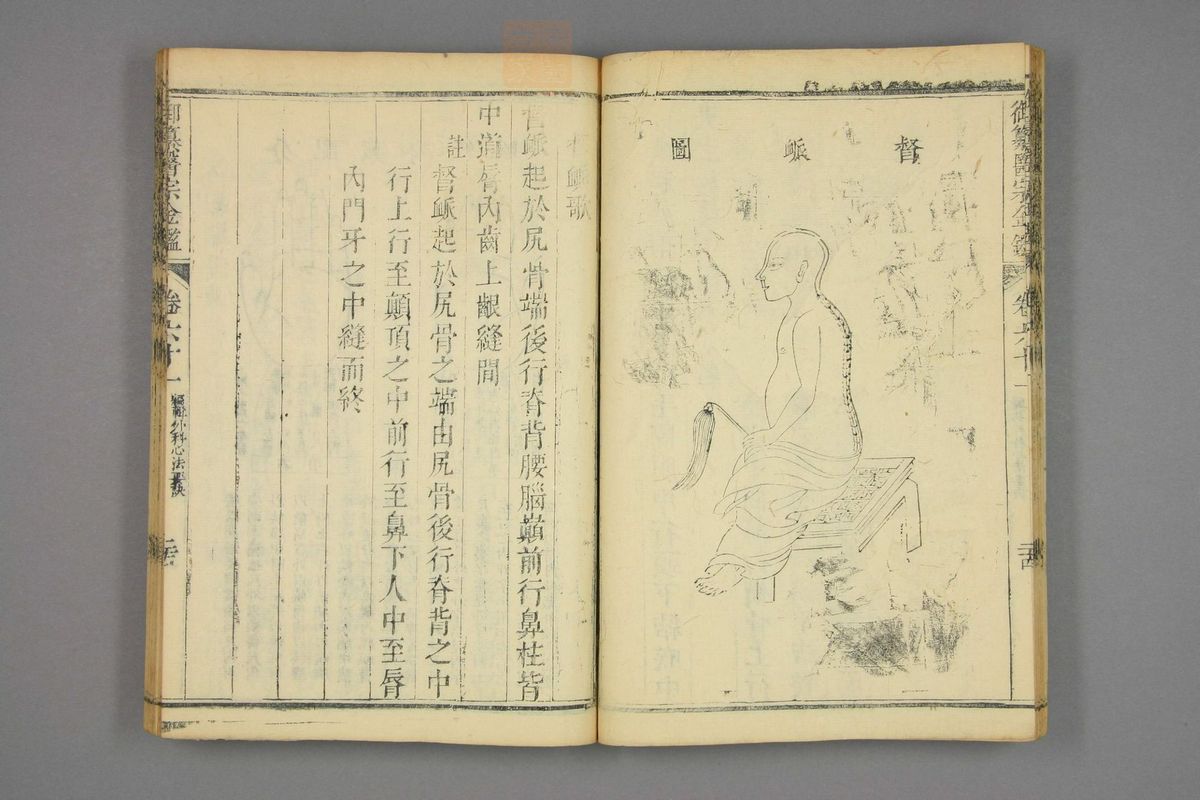 御纂醫宗金鑑
卷六十一
督脈圖
督脈歌
督脈起於尻骨端後行脊背腰腦巔前行鼻柱皆
中道唇內齒上齦縫間
註督脈起於尻骨之端由尻骨後行脊背之中
行上行至顛頂之中前行至鼻下人中至唇
內門牙之中縫而終
御纂醫宗金鑑
卷六十一
編輯外科心法要訣